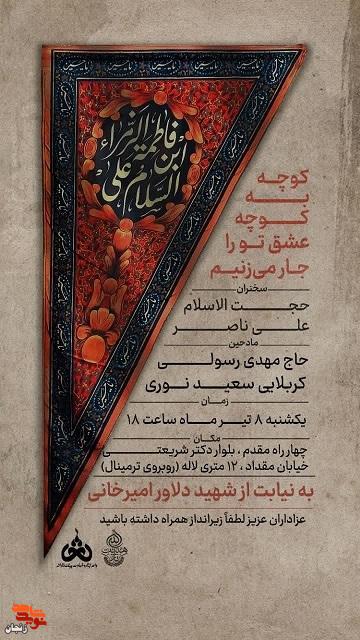 السلام علی
ابن فاطمة الزهراء
کوچه
به
کوچه
عشق تو را
جار می‌زنیم
سخنران
حجت الاسلام
علی ناصر
مادحین
حاج مهدی رسولی
کربلایی سعید نوری
زمان
یکشنبه ۸ تیر ماه ساعت ۱۸
مکان
چهارراه مقدم ، بلوار دکتر شریعتی
خیابان مقداد ، ۱۲ متری لاله (روبروی ترمینال)
به نیابت از شهید دلاور امیرخانی
عزاداران عزیز لطفاً زیرانداز همراه داشته باشید
زنجان